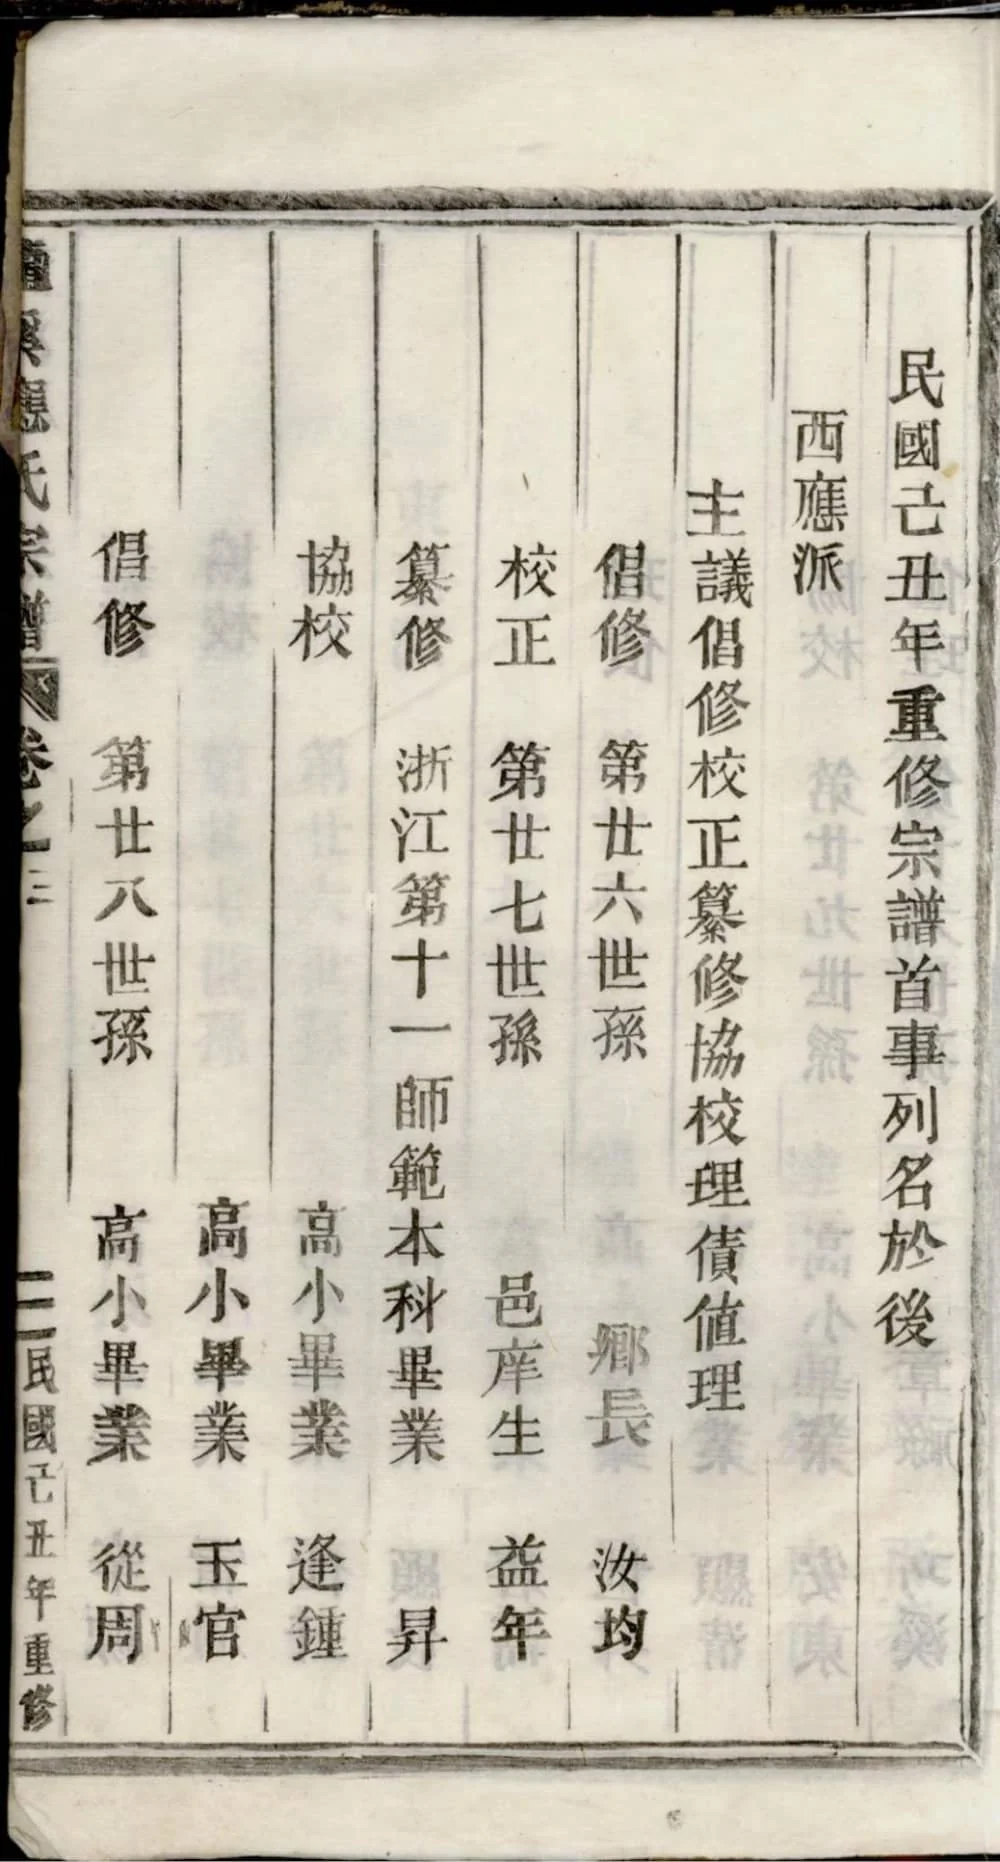 民國己丑年重修宗譜首事列名於後
西應派
主議倡修校正纂修協校理債值理
倡修　第廿六世孫　鄉長　汝均
校正　第廿七世孫　邑庠生　益年
纂修　浙江第十一師範本科畢業　昇
協校　高小畢業　逢鍾
高小畢業　玉官
倡修　第廿八世孫　高小畢業　從周
溪應氏宗譜　卷之三　二　民國己丑年重修